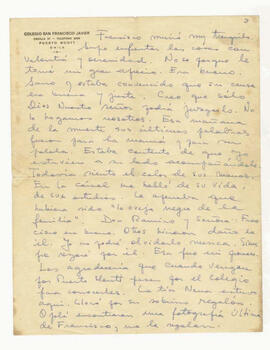 COLEGIO SAN FRANCISCO JAVIER
PUERTO MONTT
CHILE
Francisco murió muy tranquilo
Supo enfrentar las cosas con
valentía y serenidad. No se porque le
tenía un gran aprecio. Era bueno.
Sano y estaba convencido que su causa
era buena y justa. Creo que sólo
Dios Nuestro Señor podrá juzgarlo. No
lo hagamos nosotros. Esa mañana
de la muerte sus últimas palabras
fueron para la mamá y para sus
Estaba contento de que yo
estuviera a su lado acompañándole.
Todavía siento el calor de sus manos.
En la cárcel me habló de su vida
de sus estudios. Le apenaba que
hubiera sido "la oveja negra de la
familia". Don Ramiro y Señora: Fran
cisco era bueno. Otros hicieron daño a
él. Yo no podré olvidarlo nunca. Siem
pre rezaré por él. Era fue mi
Les agradecería que cuando vengan
por Puerto Montt pasen por el Colegio
para conocerles. La tía Nena estuvo
aquí. Lloró por su sobrino regalón.
Ojalá encontraran una fotografía última
de Francisco, me la regalan.